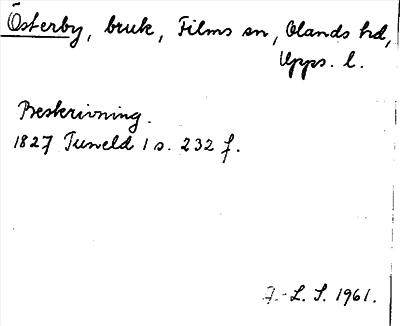 Österby, bruk, Films sn, Olands hd,
Upps. l.
Beskrivning.
1827 Tuneld 1 s. 232 f.
L. S. 1961.